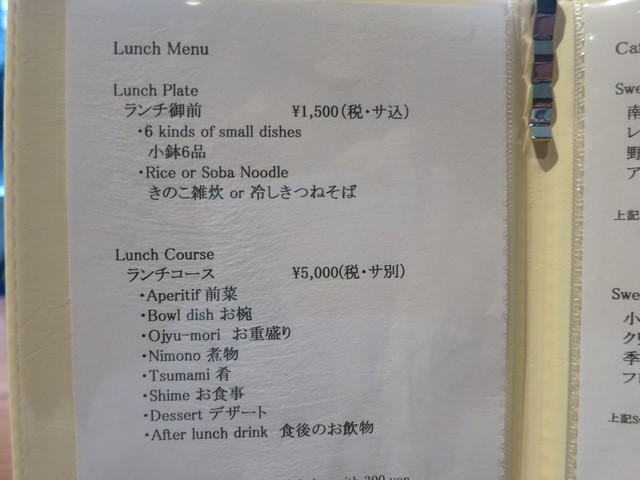 Lunch Menu
Lunch Plate
ランチ御前 ¥1,500(税・サ込)
・6 kinds of small dishes
小鉢6品
・Rice or Soba Noodle
きのこ雑炊 or 冷しきつねそば
Lunch Course
ランチコース ¥5,000(税・サ別)
・Aperitif 前菜
・Bowl dish お椀
・Ojyu-mori お重盛り
・Nimono 煮物
・Tsumami 肴
・Shime お食事
・Dessert デザート
・After lunch drink 食後のお飲物
with 300 yen
上記
季